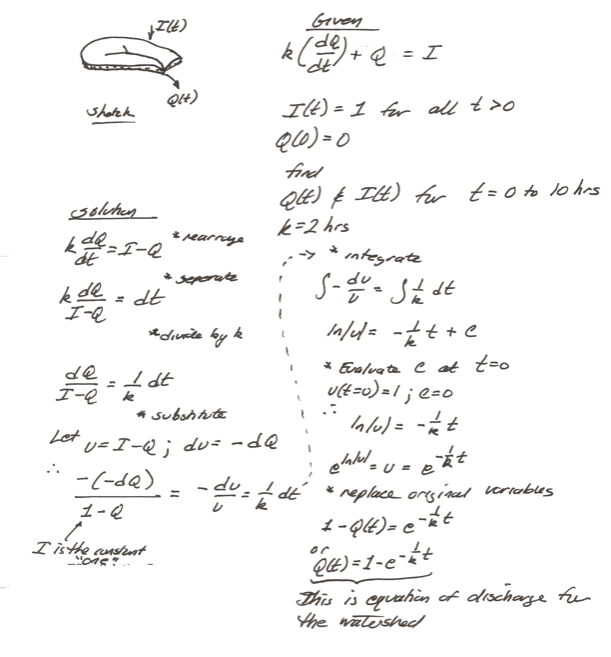 I(t)
Q(t)
Sketch
Given
k(dQ/dt) + Q = I
I(t) = 1 for all t > 0
Q(0) = 0
find
Q(t) & I(t) for t = 0 to 10 hrs
k = 2 hrs
Solution
k dQ/dt = I - Q * rearrange
* separate
k dQ/(I-Q) = dt
* divide by k
dQ/(I-Q) = 1/k dt
* substitute
Let u = I - Q ; du = -dQ
∴ -(-dQ)/(1-Q) = -du/u = 1/k dt
I is the constant
"one"
--> * integrate
∫ -du/u = ∫ 1/k dt
ln|u| = -1/k t + C
* Evaluate C at t=0
u(t=0) = 1 ; C = 0
∴ ln|u| = -1/k t
e^ln|u| = u = e^(-1/k t)
* replace original variables
1 - Q(t) = e^(-1/k t)
or
Q(t) = 1 - e^(-1/k t)
This is equation of discharge for
the watershed